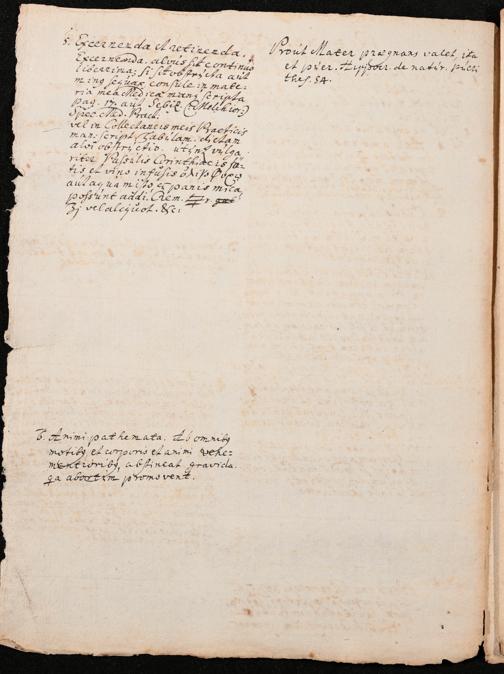 5. Excernenda et retinenda.
Excernenda. alvus sit continuò
liberrima; si sit obstricta aut
minus sequax consule in mate-
riâ meâ Medicâ manuscriptâ
pag. 17. aut Sebiz. (Melchior)
Spec. Med. Pract.
vel in Collectaneis meis Practicis
manuscript. Tabulam. dictam
alvi obstrictio. utint. vulga-
riter Passulis Corinthiacis
tis et vino infusis
aut aquam et panis mica
possunt addi. Crem.
ʒj vel aliquot. &c.
Prout Mater prægnans valet, ita
et puer. Hippocr. de natur. pueri
thes. 54.
6. Animi pathemata. Ab omnibꝫ
motibꝫ et corporis et animi vehe-
mentioribꝫ, abstineat gravida.
qa abortum promovent.